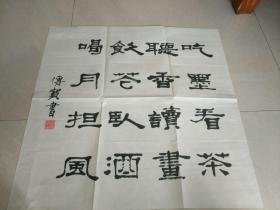 吃墨看茶
聽香讀畫
飲花臥酒
喝月担風
傳寶書